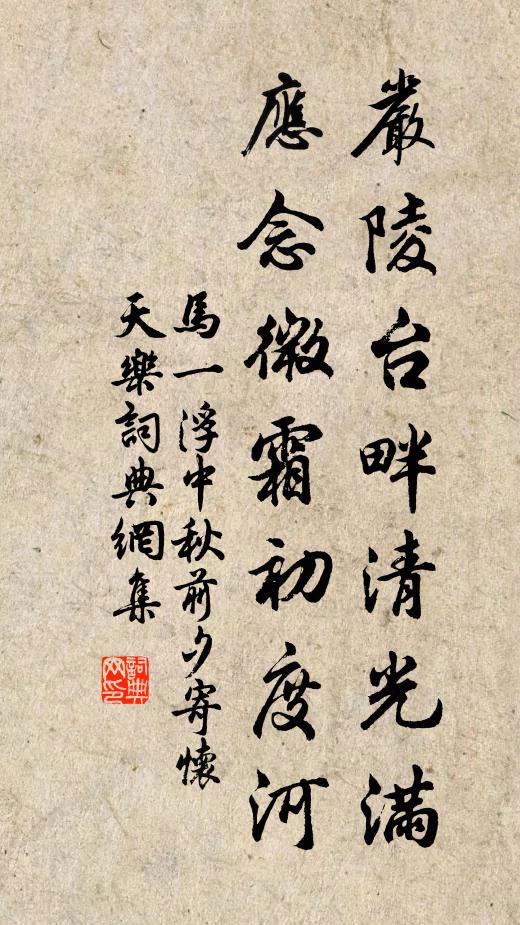 嚴陵台畔清光滿
應念微霜初度河
馬一浮中秋前夕寄懷
天樂詞典網集
詞典網印